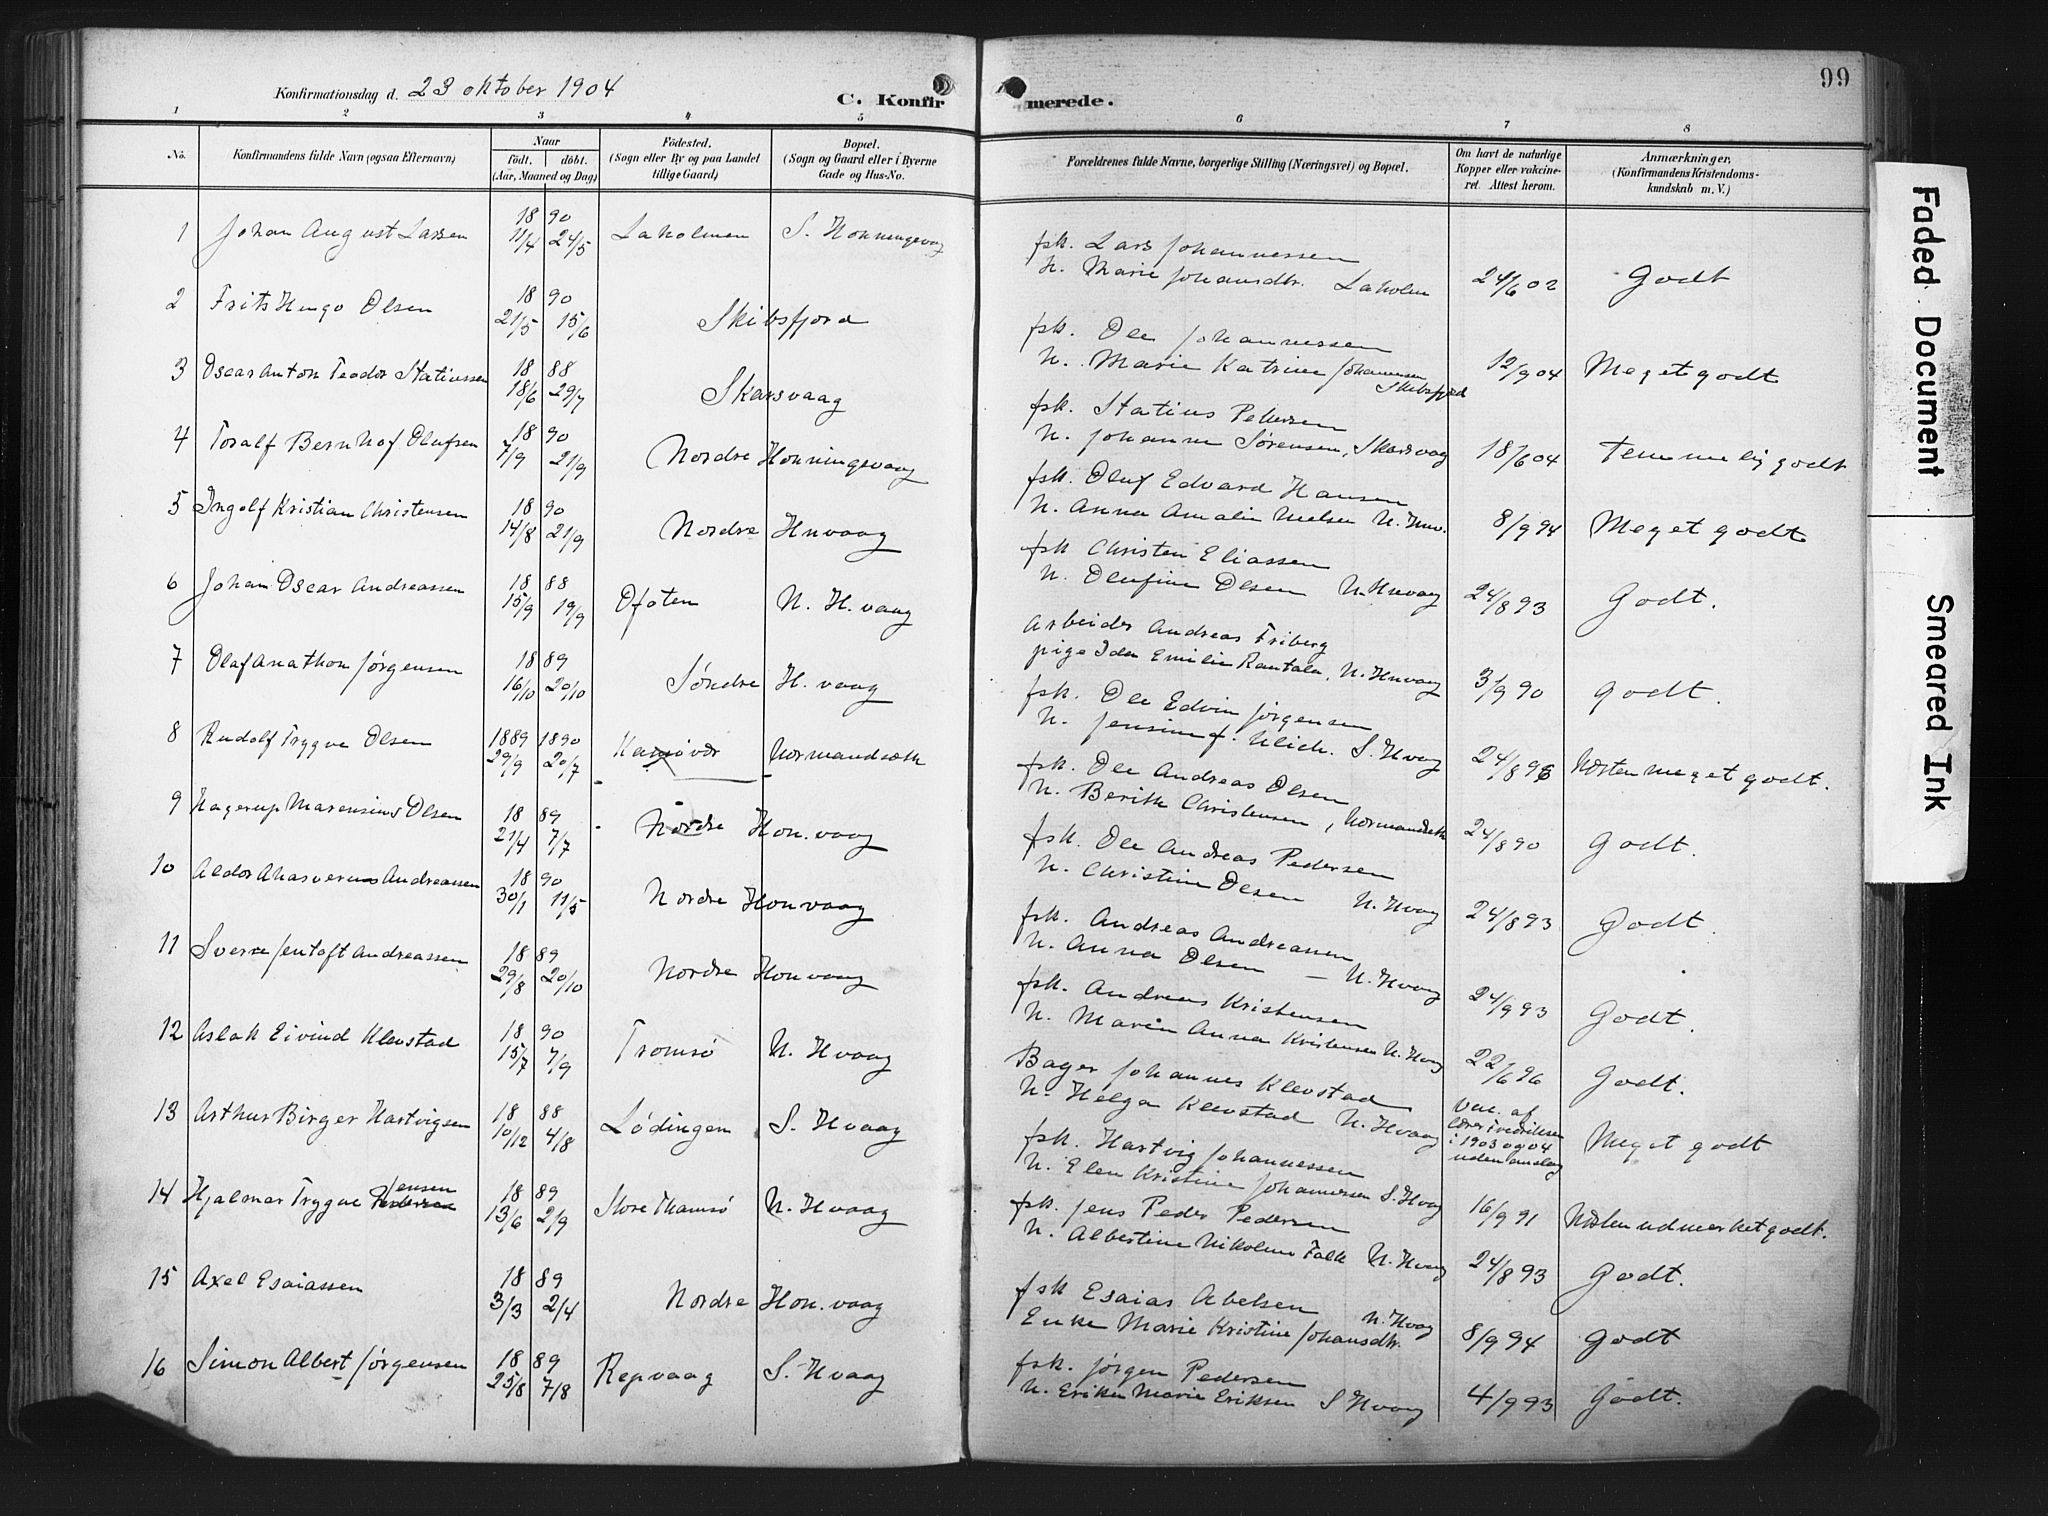 Konfirmationsdag d. 23 oktober 1904
C. Konfirmerede.
99
1 2 3 4 5 6 7 8
No.
Konfirmandens fulde Navn (ogsaa Efternavn)
Naar
født. døbt.
(Aar, Maaned og Dag)
Fødested.
(Sogn eller By og paa Landet
tillige Gaard)
Bopæl.
(Sogn og Gaard eller i Byerne
Gade og Hus-No.
Forældrenes fulde Navne, borgerlige Stilling (Næringsvei) og Bopæl.
Om havt de naturlige
Kopper eller vakcine-
ret. Attest herom.
Anmærkninger.
(Konfirmandens Kristendoms-
kundskab m. V.)
1 Johan August Larsen 18 90 11/4 24/5 Laholmen S. Honningsvaag
fsk. Lars Johannessen
H. Marie Johansdtr. Laholm 24/6 02 Godt
2 Frits Hugo Olsen 18 90 21/5 15/6 Skibsfjord
fsk. Ole Johannessen
H. Marie Katrine Johannessen Skibsfjord 12/9 04 Meget godt
3 Oscar Anton Teodor Statiussen 18 88 18/6 29/7 Skarsvaag
fsk. Statius Pettersen
H. Johanne Sørensen, Skarsvaag 18/6 04 Temmelig godt
4 Toralf Bernhof Olufsen 18 90 7/9 21/9 Nordre Honningsvaag
fsk. Oluf Edvard Hansen
H. Anna Amalie Nielsen N. Hnv. 8/9 94 Meget godt
5 Ingolf Kristian Christensen 18 90 14/8 21/9 Nordre Hnvaag
fsk Christen Eliassen
H. Olufine Olsen N. Hnvaag 24/8 93 Godt.
6 Johan Oscar Andreassen 18 88 15/9 19/9 Ofoten N. H. vaag
Arbeider Andreas Friberg
pige Ida Emilie Rantala, N. Hnvaag 3/9 90 Godt.
7 Olaf Anathon Jørgensen 18 89 16/10 20/10 Søndre H. vaag
fsk. Ole Edvin Jørgensen
H. Jensine f. Ulich. S. Hvaag 24/8 93 Næsten meget godt.
8 Rudolf Trygve Olsen 1889 1890 29/9 20/7 Kamøvær Normandsæth
fsk. Ole Andreas Olsen
H. Berith Christensen, Normandseth 24/8 90 Godt.
9 Hagerup Marensius Olsen 18 89 21/4 7/7 Nordre Hon. vaag
fsk. Ole Andreas Pedersen
H. Christine Olsen N. Hvaag 24/8 93 Godt.
10 Aldor Ahasverus Andreassen 18 90 30/1 11/5 Nordre Honvaag
fsk. Andreas Andreassen
H. Anna Olsen — N. Hvaag 24/9 93 Godt.
11 Sverre Jentoft Andreassen 18 89 29/8 20/10 Nordre Honvaag
fsk. Andreas Kristensen
H. Maren Anna Kristensen N. Hvaag 22/6 96 Godt.
12 Aslak Eivind Klevstad 18 90 15/7 7/9 Tromsø N. Hvaag
Bager Johannes Klevstad
H. Helga Klevstad N. Hvaag Vac. af
lærer Fredriksen
i 1903 og 04
uden anslag Meget godt
13 Arthur Birger Hartvigsen 18 88 10/12 4/8 Lødingen S. Hvaag
fsk. Hartvig Johannessen
H. Elen Kristine Johannessen S. Hvaag 16/9 91 Næsten udmerket godt.
14 Hjalmar Trygve Jensen Pedersen 18 89 13/6 2/9 Store Thamsø N. Hvaag
fsk. Jens Peder Pedersen
H. Albertine Nikoline Falk N. Hvaag 24/8 93 Godt.
15 Axel Esaiassen 18 89 3/3 2/4 Nordre Hon. vaag
fsk Esaias Abelsen
Enke Marie Kristine Johansdtr. N. Hvaag 8/9 94 Godt
16 Simon Albert Jørgensen 18 89 25/8 7/8 Repvaag S. Hvaag
fsk. Jørgen Pedersen
H. Erika Marie Eriksen S Hvaag 4/9 93 Godt.
Faded Document
Smeared Ink